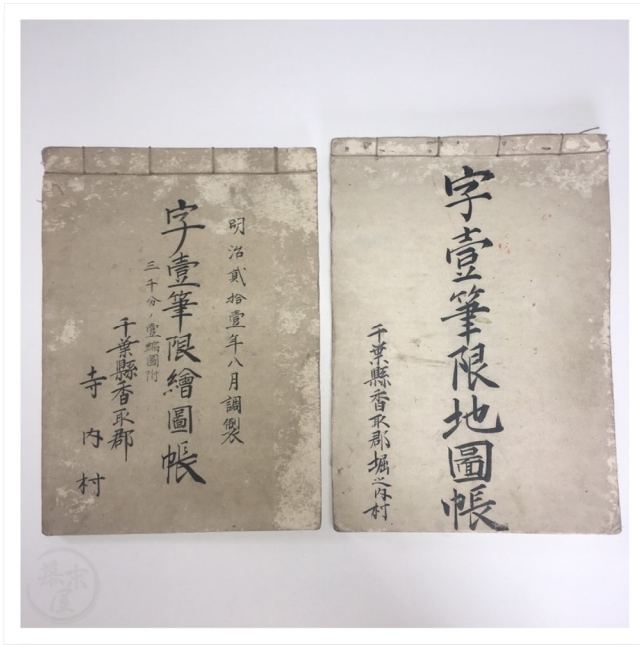 字壹筆限地圖帳
千葉縣香取郡堀之内村
明治貳拾壹年八月調製
字壹筆限繪圖帳
三千分ノ壹縮圖附
千葉縣香取郡
寺内村